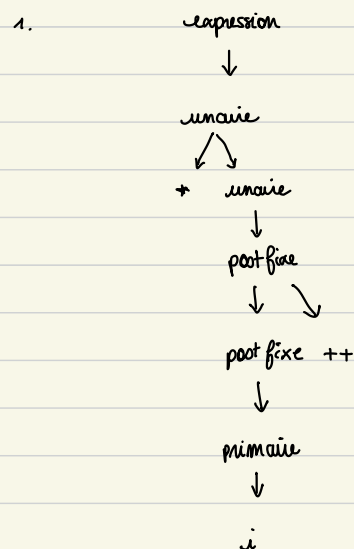 1. expression
unaire
* unaire
postfixe
postfixe ++
primaire
i